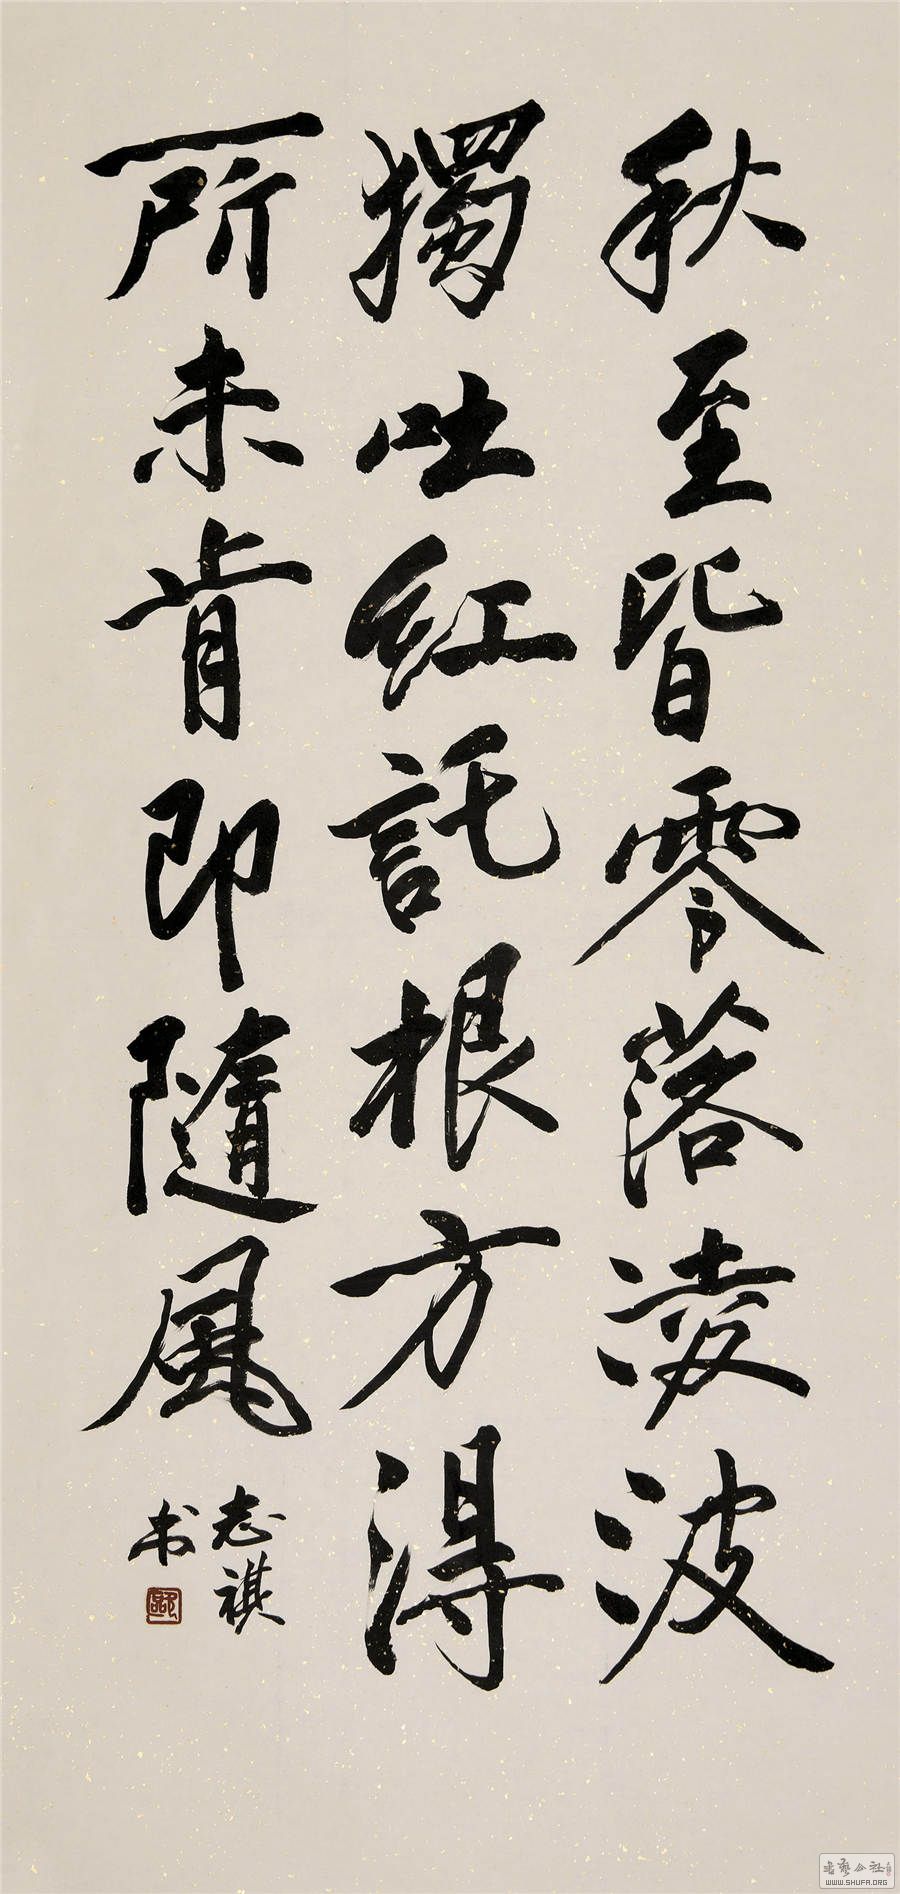 秋至皆零落凌波
獨吐紅託根方得
所未肯即隨風
志祺
书
書藝公社
WWW.SHUFA.ORG